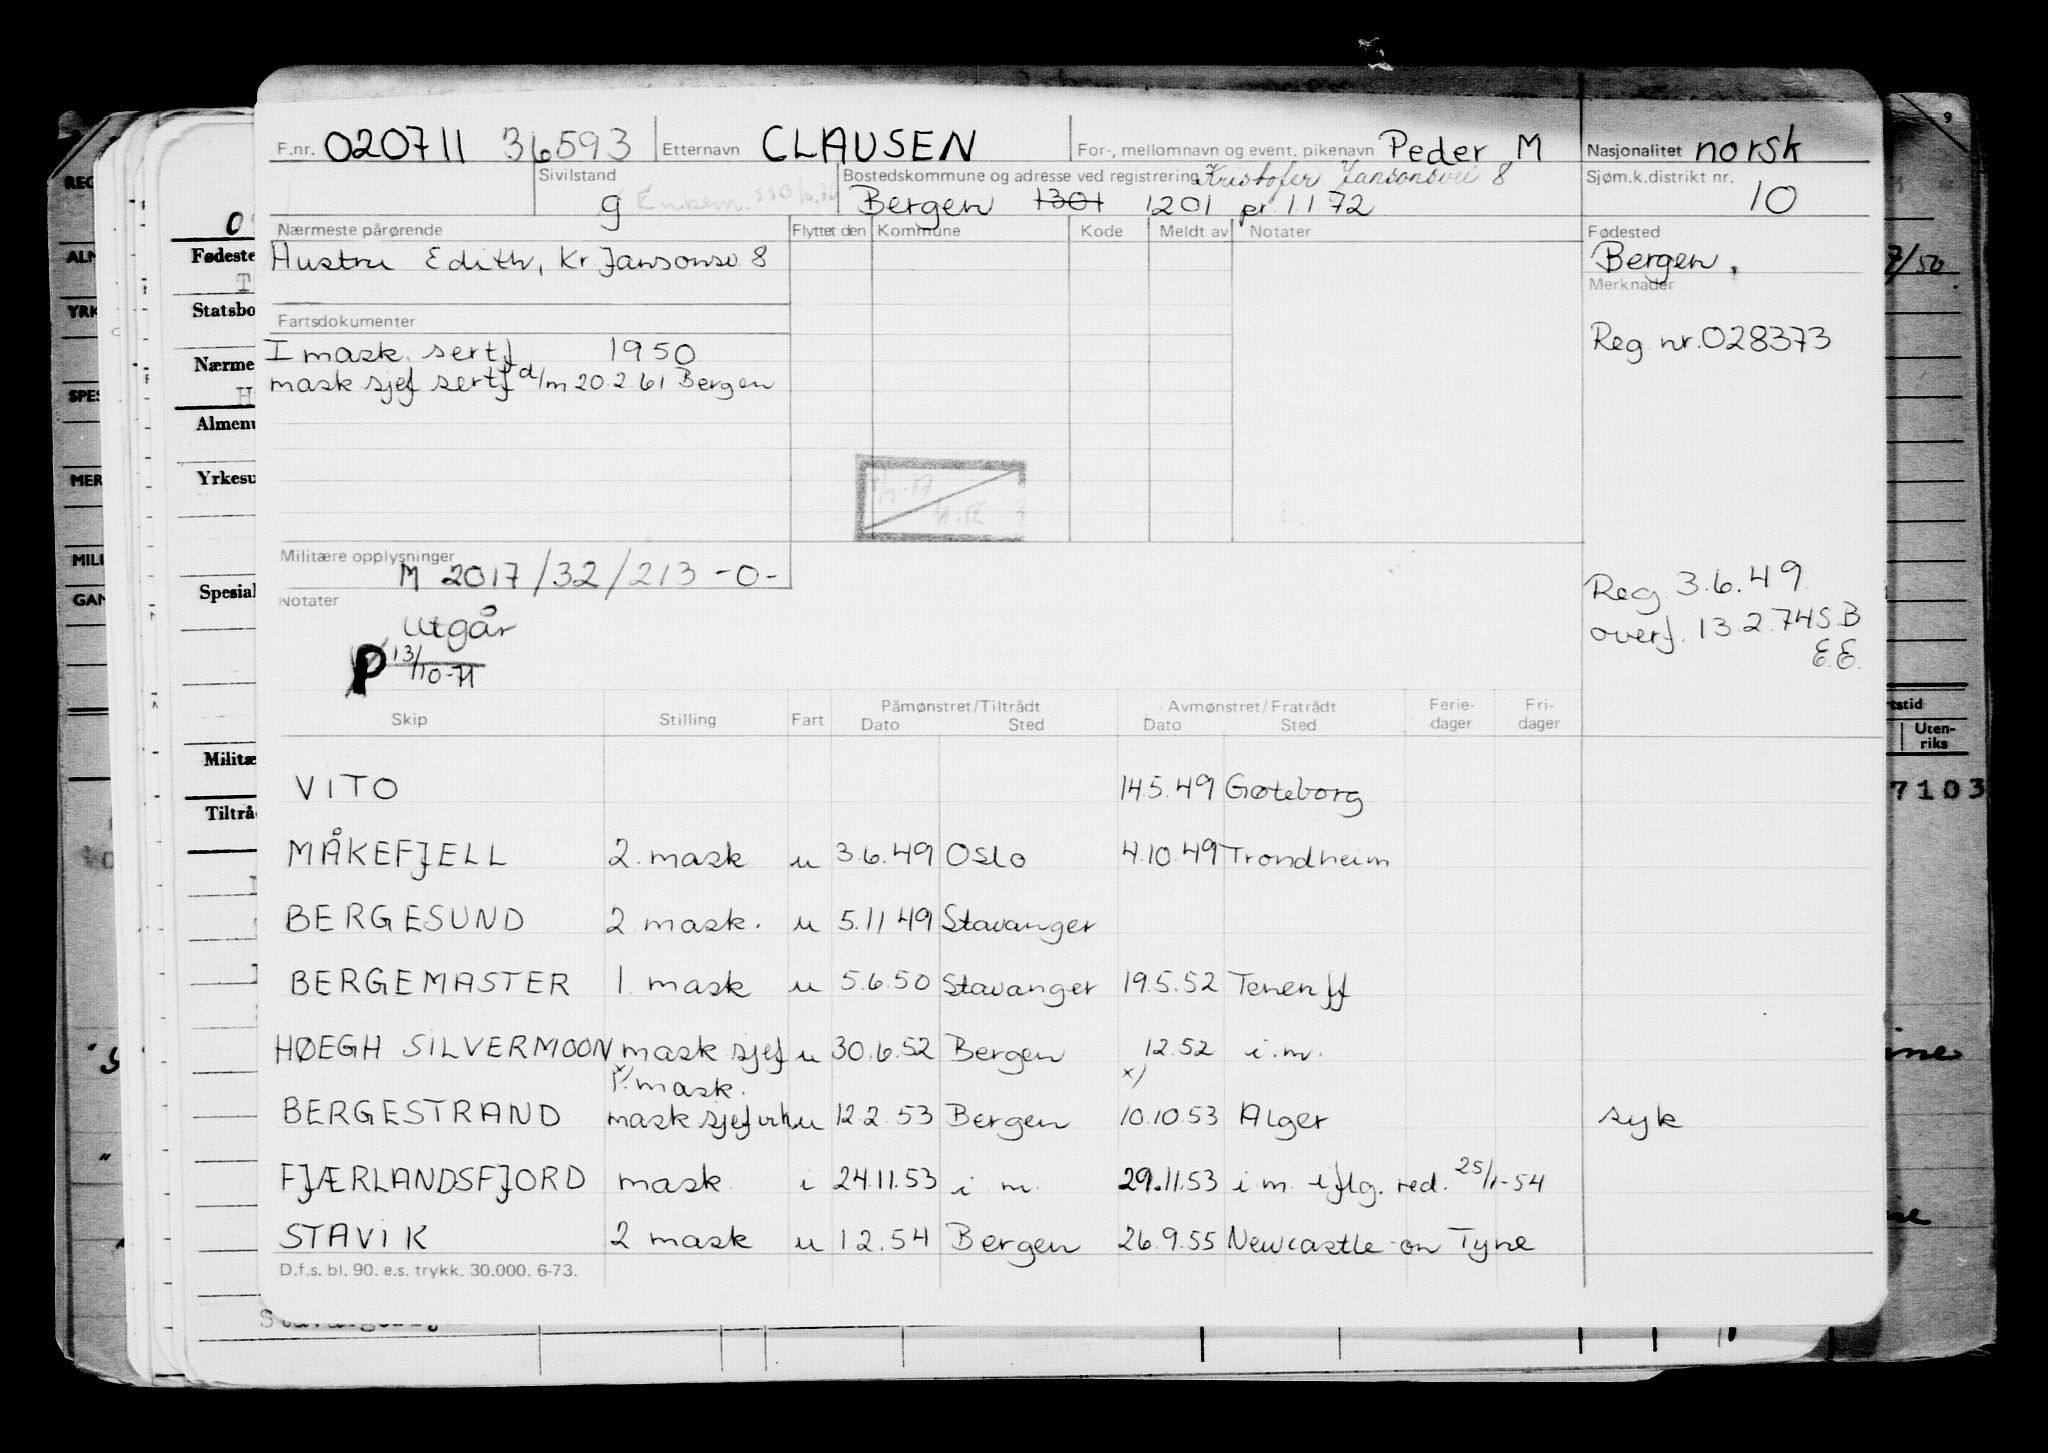 F.nr. 020711 36593 Etternavn CLAUSEN For-, mellomnavn og event. pikenavn Peder M Nasjonalitet norsk
Sivilstand g Bostedskommune og adresse ved registrering Kristofer Jansonsvei 8 Sjøm.k.distrikt nr. 10
Bergen 1301 1201 pr. 1.1.72
Nærmeste pårørende Flyttet den Kommune Kode Meldt av Notater Fødested
Hustru Edith, Kr Jansonsv. 8 Bergen.
Merknader
Fartsdokumenter
Reg nr. 028373
I mask. sertf 1950
mask sjef sertf d/m 20.2.61 Bergen
Militære opplysninger
M 2017/32/213 -0-
Notater
Reg. 3.6.49
Utgår
overf. 13.2.74 S.B
P 13/10-71
E.E.
Skip Stilling Fart Påmønstret/Tiltrådt Dato Sted Avmønstret/Fratrådt Dato Sted Ferie-dager Fri-dager
VITO 14.5.49 Gøteborg
MÅKEFJELL 2. mask u 3.6.49 Oslo 4.10.49 Trondheim
BERGESUND 2 mask. u 5.11 49 Stavanger
BERGEMASTER 1. mask u 5.6.50 Stavanger 19.5.52 Teneriff
HØEGH SILVERMOON mask sjef u 30.6.52 Bergen 12.52 i.m.
x) 1. mask. x)
BERGESTRAND mask sjef vik u 12.2.53 Bergen 10.10.53 Alger syk
FJÆRLANDSFJORD mask i 24.11.53 i m. 29.11.53 i m iflg. red. 25/1-54
STAVIK 2 mask u 1.2.54 Bergen 26.9.55 Newcastle-on Tyne
D.f.s. bl. 90. e.s. trykk. 30.000. 6-73.
REG
ALM
YRK
SPES
MER
MILI
GAN
Fødeste
Statsbo
Nærme
Almenu
Yrkesu
Spesial
Militæ
Tiltrå
9
7/50
rtstid
Uten-
riks
7103